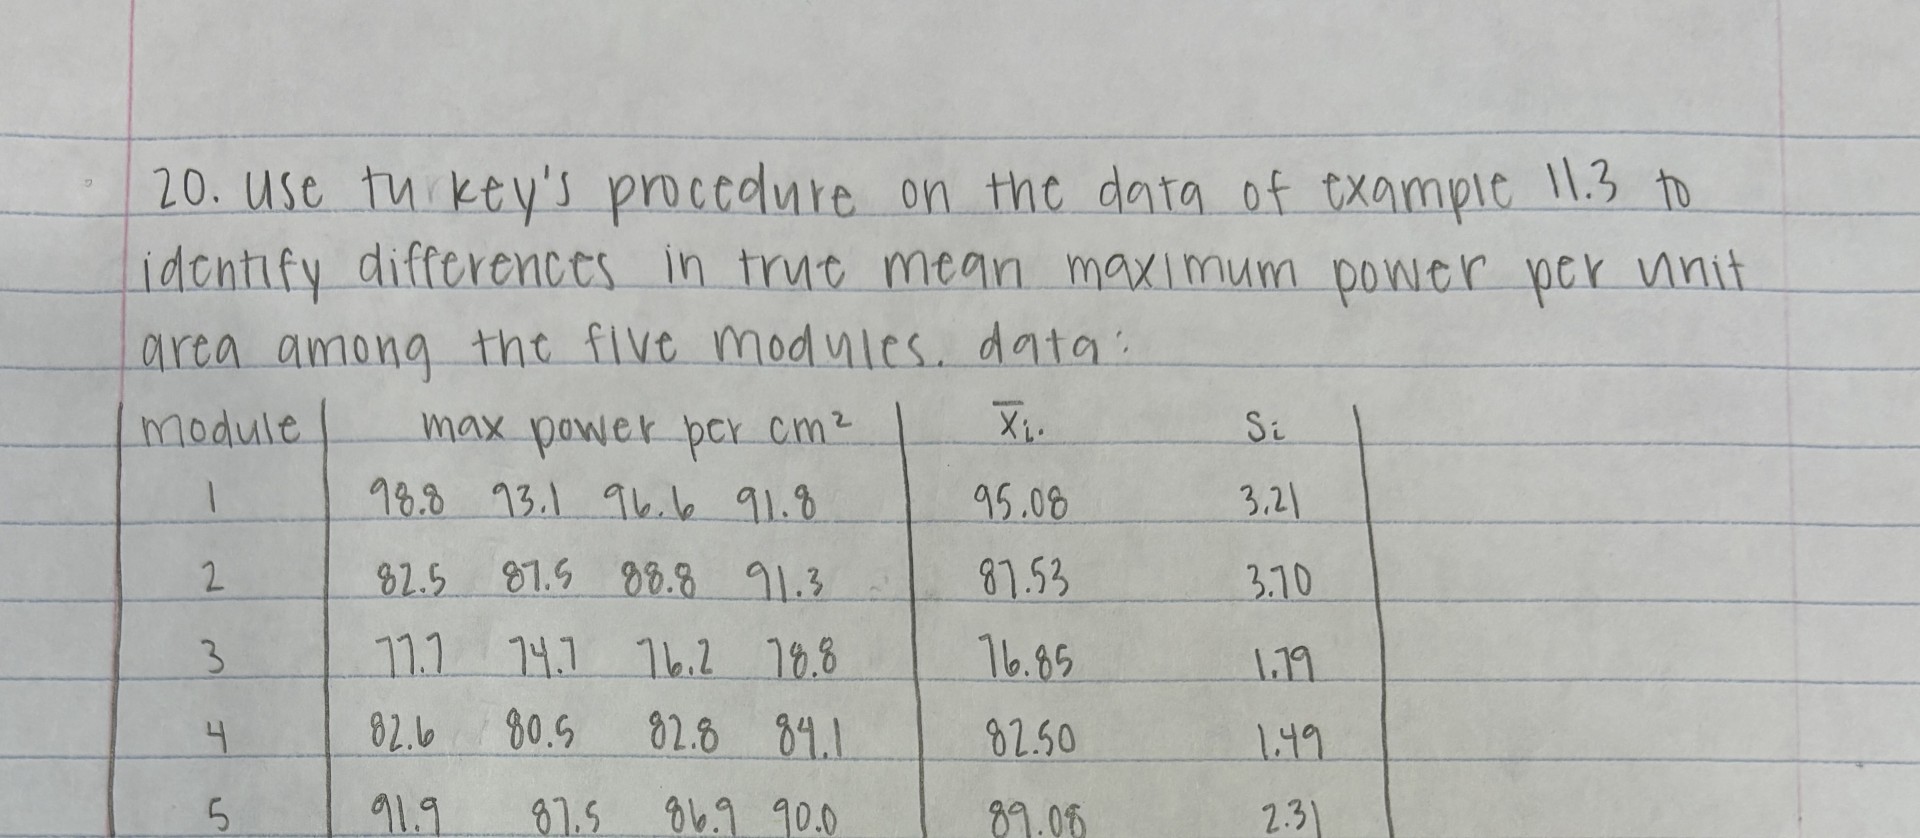 20. use tu key's procedure on the data of example 11.3 to
identify differences in true mean maximum power per unit
area among the five modules. data:
module max power per cm² x̄i. si
1 98.8 93.1 96.6 91.8 95.08 3.21
2 82.5 87.5 88.8 91.3 87.53 3.70
3 77.7 74.7 76.2 78.8 76.85 1.79
4 82.6 80.5 82.8 84.1 82.50 1.49
5 91.9 87.5 86.9 90.0 89.08 2.31